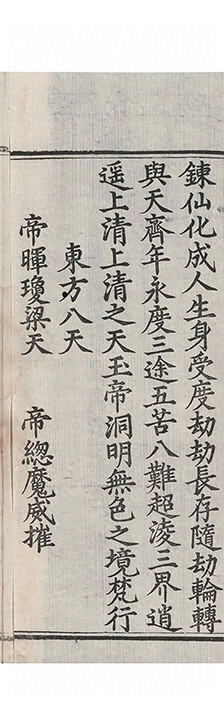 鍊仙化成人生身受度劫劫長存隨劫輪轉
與天齊年永度三途五苦八難超淩三界逍
遥上清上清之天玉帝洞明無色之境梵行
東方八天
帝暉瓊梁天　帝總魔威摧